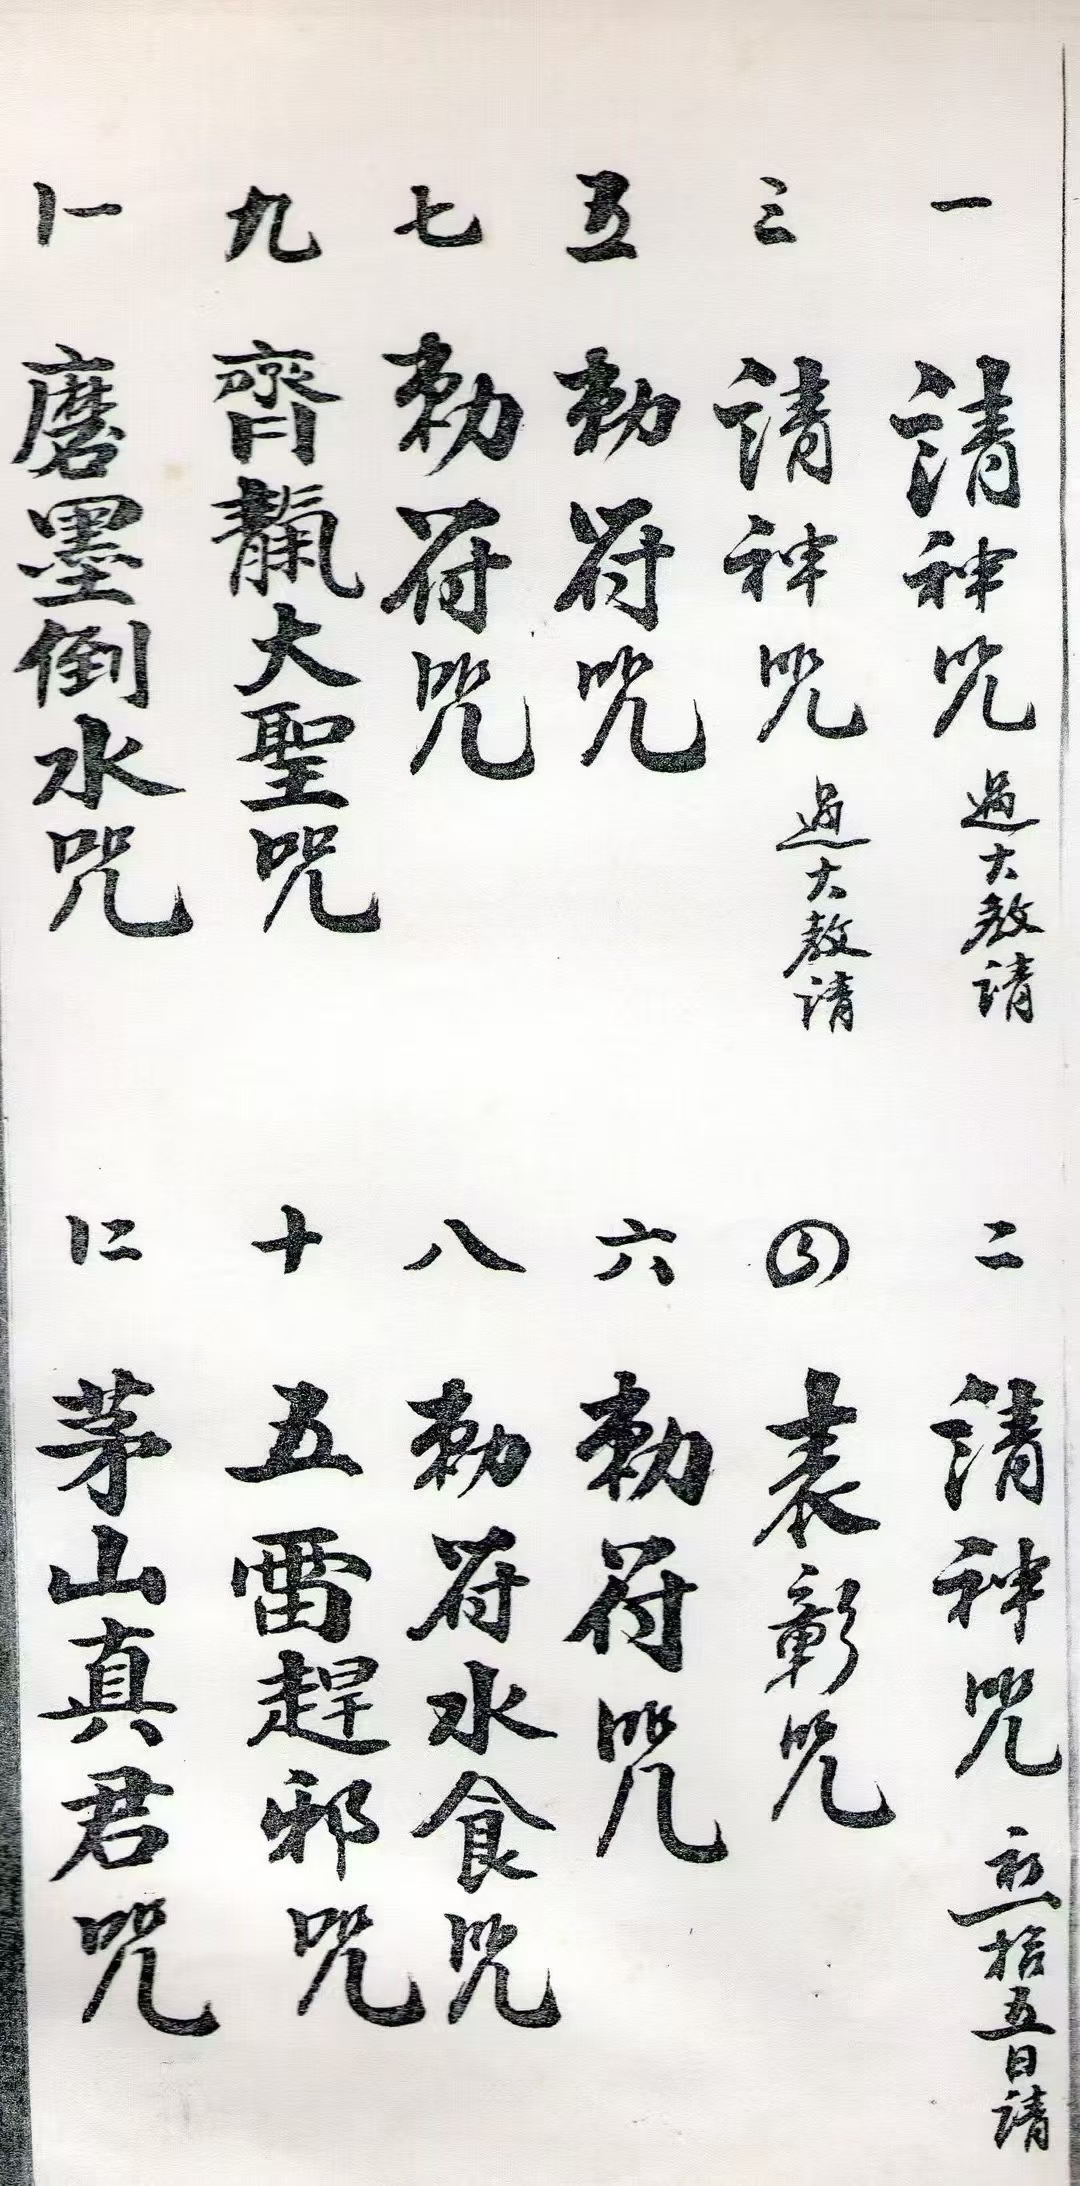 一 請神咒 過大教請
二 請神咒 初一拾五日請
三 請神咒 過大教請
四 表彰咒
五 勅符咒
六 勅符咒
七 勅符咒
八 勅符水食咒
九 齊天大聖咒
十 五雷趕邪咒
十一 磨墨倒水咒
十二 茅山真君咒